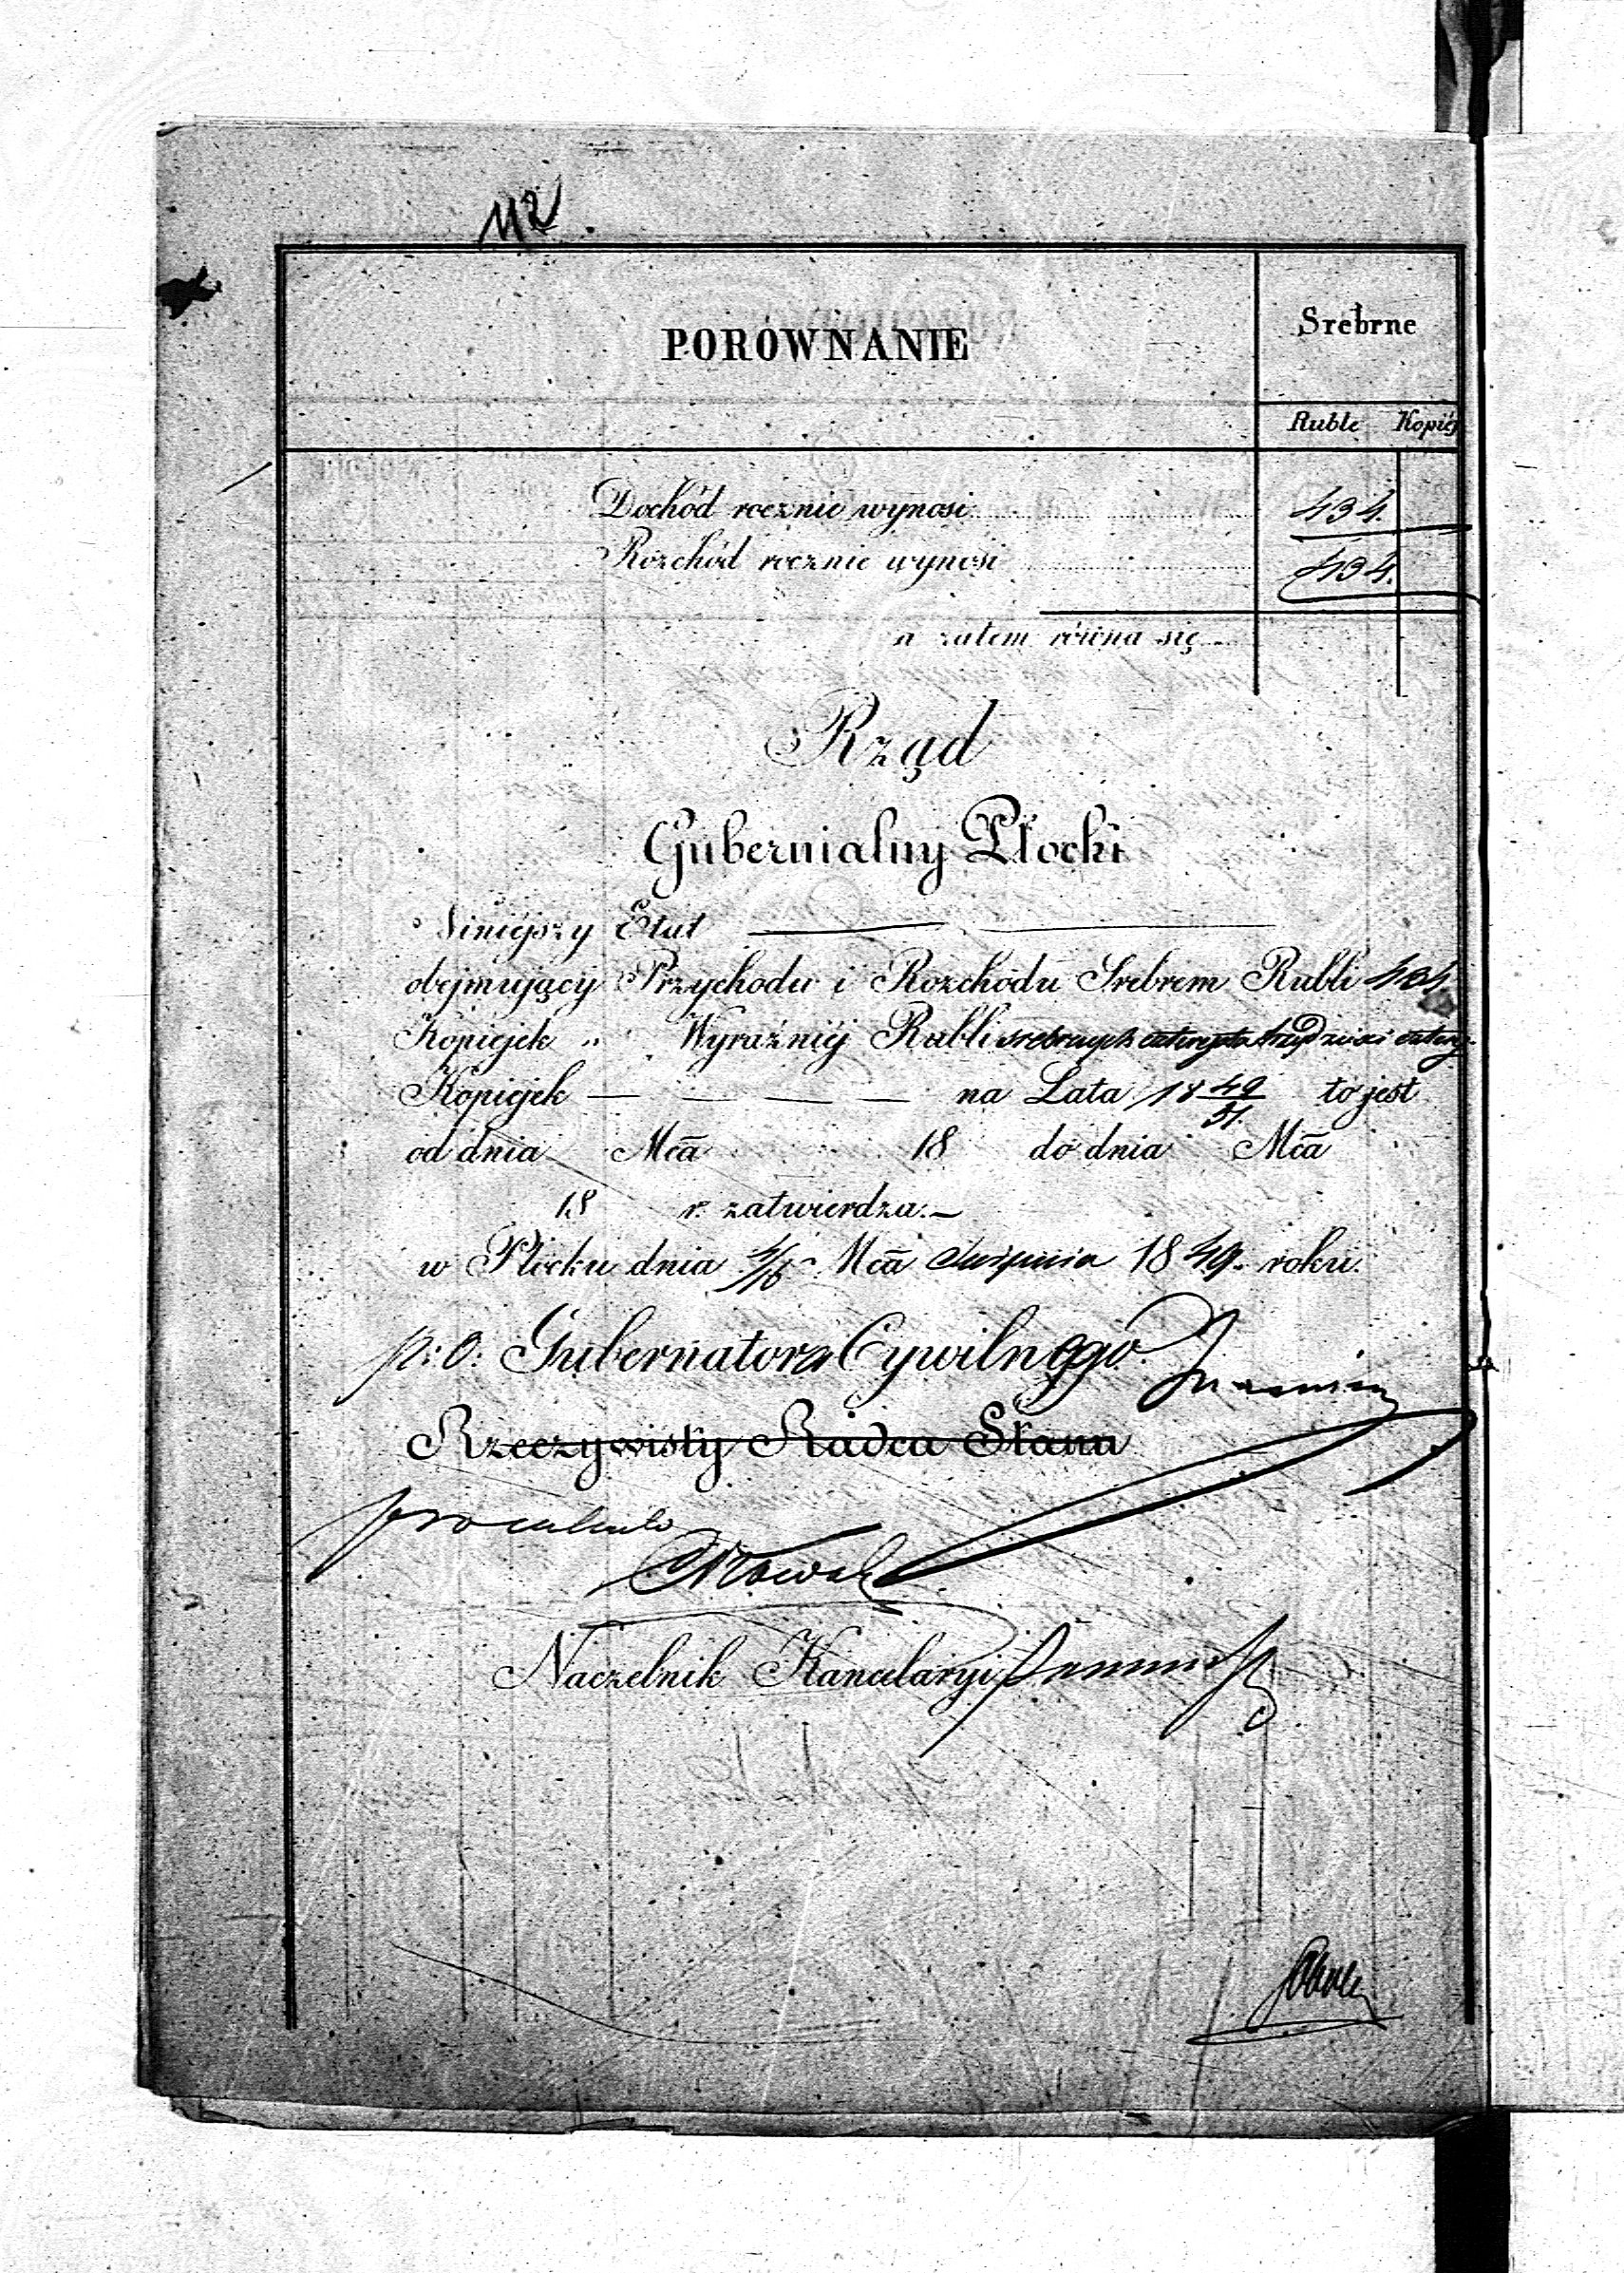 112
PORÓWNANIE
Srebrne
Ruble Kopiéj
Dochód rocznie wynosi 434.
Rozchód rocznie wynosi 434.
a zatem równa się
Rząd
Gubernialny Płocki
Niniéjszy Etat
obejmujący Przychodu i Rozchodu Srebrem Rubli 434
Kopiejek " Wyraźniéj Rubli srebrnych czterysta trzydzieści cztery
Kopiejek — — — — na Lata 18 49/51. to jest
od dnia Mca 18 do dnia Mca
18 r. zatwierdza.—
w Płocku dnia 4/16 Mca Sierpnia 1849. roku.
p: o: Gubernatora Cywilnego.
Rzeczywisty Radca Stanu
pro calculo
Naczelnik Kancelaryi